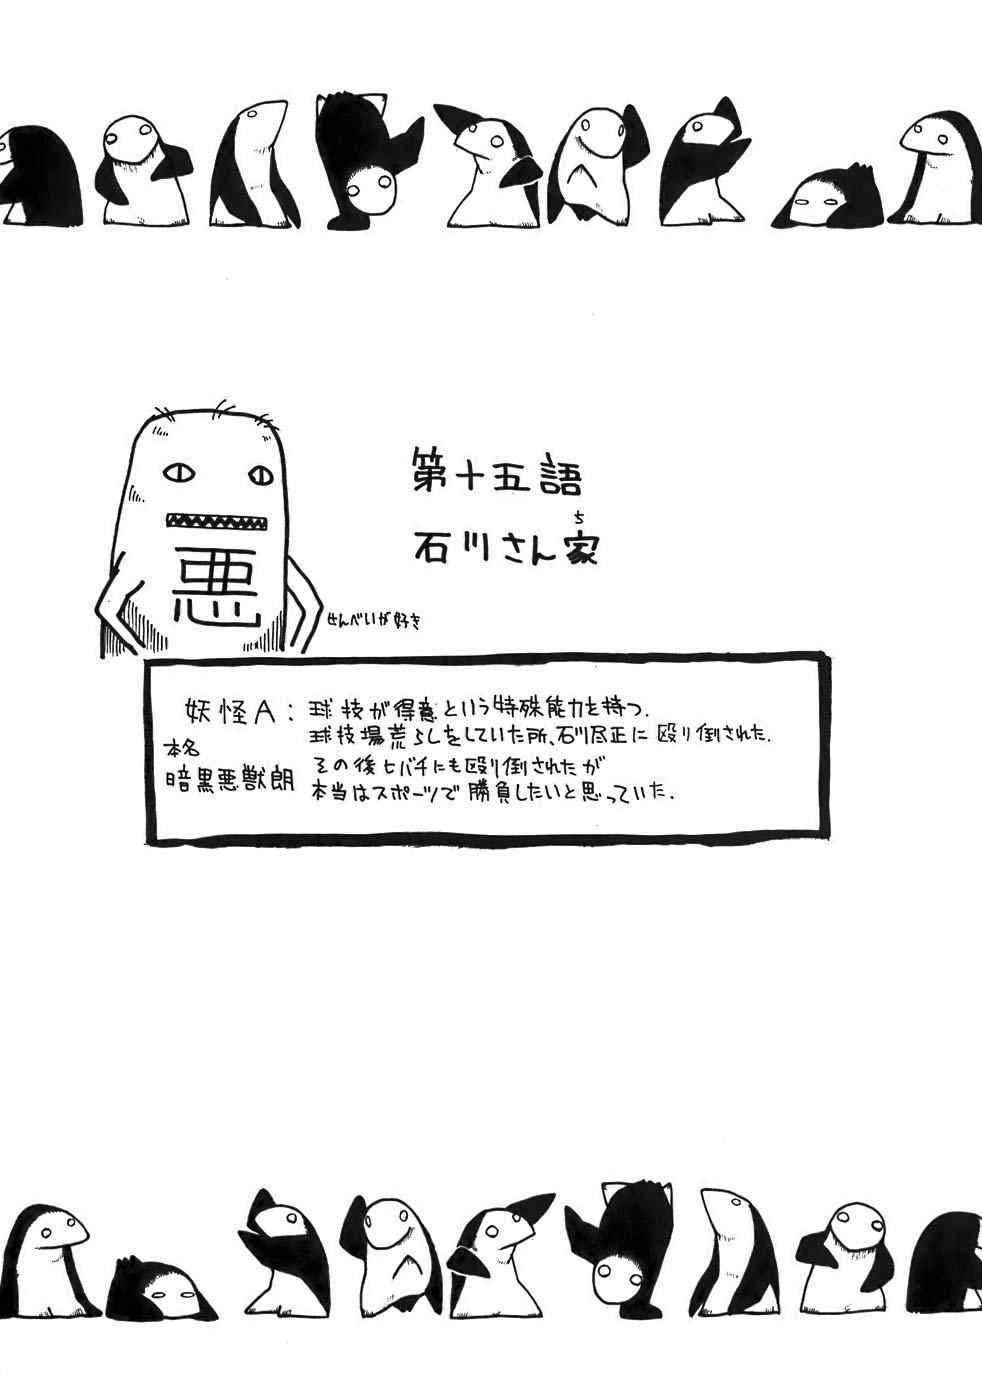 第十五語
石川さん家
ち
悪
せんべいが好き
妖怪A:
本名
暗黒悪獣朗
球技が得意という特殊能力を持つ.
球技場荒らしをしていた所、石川尽正に殴り倒された.
その後ヒバチにも殴り倒されたが
本当はスポーツで勝負したいと思っていた.